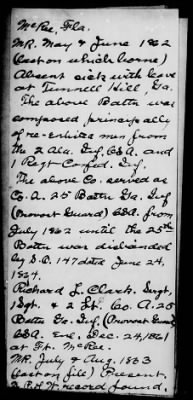 McRee, Fla.
MR. May & June 1862
(last on which borne)
Absent sick with leave
at Tunnell Hill Ga.
The above Battn was
composed principally
of re-enlisted men from
the 2 Ala. Inf. CSA. and
1 Regt Confed. Inf.
The above Co. served as
Co. A. 25 Battn Ga. Inf
(Provost Guard) CSA. from
July 1862 until the 25th
Battn was disbanded
by S.O. 147 dated June 24,
1864.
Richard L. Clark. Sergt,
1 Sgt. & 2 Lt. Co. A. 25
Battn Ga. Inf. (Provost Guard)
CSA. Enl. Dec. 24, 1861
at Ft. McRee.
MR. July & Aug. 1863
(last on file) Present.
record found.